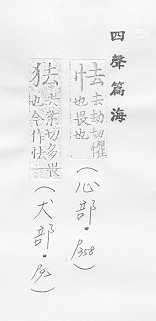 四聲篇海
怯去劫切懼
也畏也
(心部·P358)
㹤去業切多畏
也今作怯
(犬部·